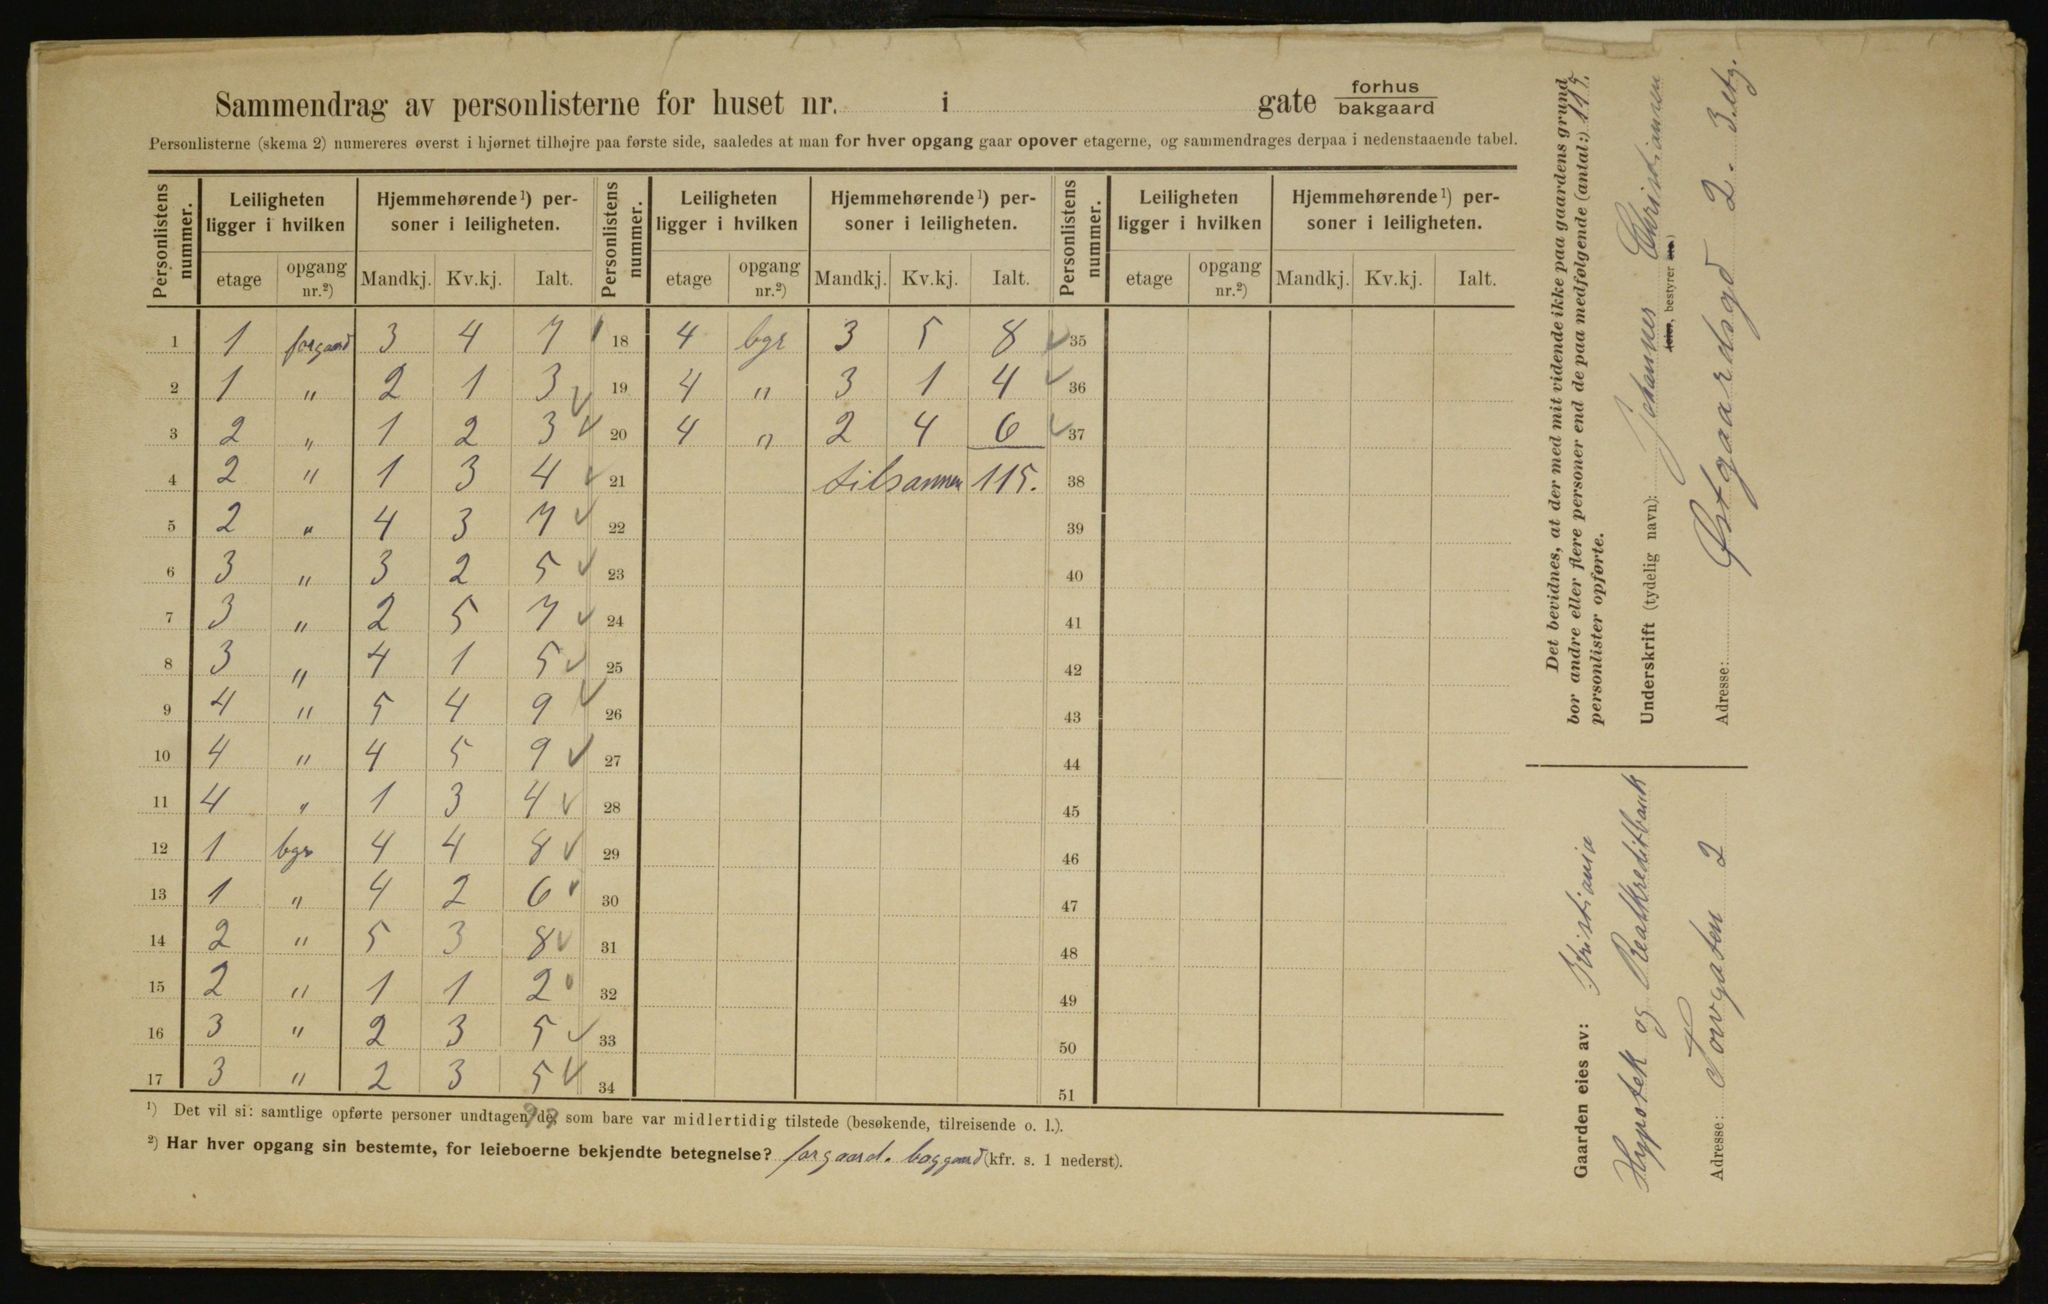 Sammendrag av personlisterne for huset nr. i gate forhus
bakgaard
Personlisterne (skema 2) numereres øverst i hjørnet tilhøjre paa første side, saaledes at man for hver opgang gaar opover etagerne, og sammendrages derpaa i nedenstaaende tabel.
Personlistens nummer. Leiligheten ligger i hvilken Hjemmehørende¹) personer i leiligheten. Personlistens nummer. Leiligheten ligger i hvilken Hjemmehørende¹) personer i leiligheten. Personlistens nummer. Leiligheten ligger i hvilken Hjemmehørende¹) personer i leiligheten.
etage opgang nr.²) Mandkj. Kv.kj. Ialt. etage opgang nr.²) Mandkj. Kv.kj. Ialt. etage opgang nr.²) Mandkj. Kv.kj. Ialt.
1 1 forgaard 3 4 7 18 4 bgr 3 5 8 35
2 1 " 2 1 3 19 4 " 3 1 4 36
3 2 " 1 2 3 20 4 " 2 4 6 37
4 2 " 1 3 4 21 tilsammen 115. 38
5 2 " 4 3 7 22 39
6 3 " 3 2 5 23 40
7 3 " 2 5 7 24 41
8 3 " 4 1 5 25 42
9 4 " 5 4 9 26 43
10 4 " 4 5 9 27 44
11 4 " 1 3 4 28 45
12 1 bgr 4 4 8 29 46
13 1 " 4 2 6 30 47
14 2 " 5 3 8 31 48
15 2 " 1 1 2 32 49
16 3 " 2 3 5 33 50
17 3 " 2 3 5 34 51
¹) Det vil si: samtlige opførte personer undtagen de, som bare var midlertidig tilstede (besøkende, tilreisende o. l.).
²) Har hver opgang sin bestemte, for leieboerne bekjendte betegnelse? forgaard. baggaard (kfr. s. 1 nederst).
Det bevidnes, at der med mit vidende ikke paa gaardens grund
bor andre eller flere personer end de paa medfølgende (antal:) 115.
personlister opførte.
Underskrift (tydelig navn): Johannes Christiansen
(eier, bestyrer etc.)
Adresse: Østgaardsgd 2. 3 etg.
Gaarden eies av: Kristiania
Hypotek og Realkreditbank
Adresse: Torvgaten 2